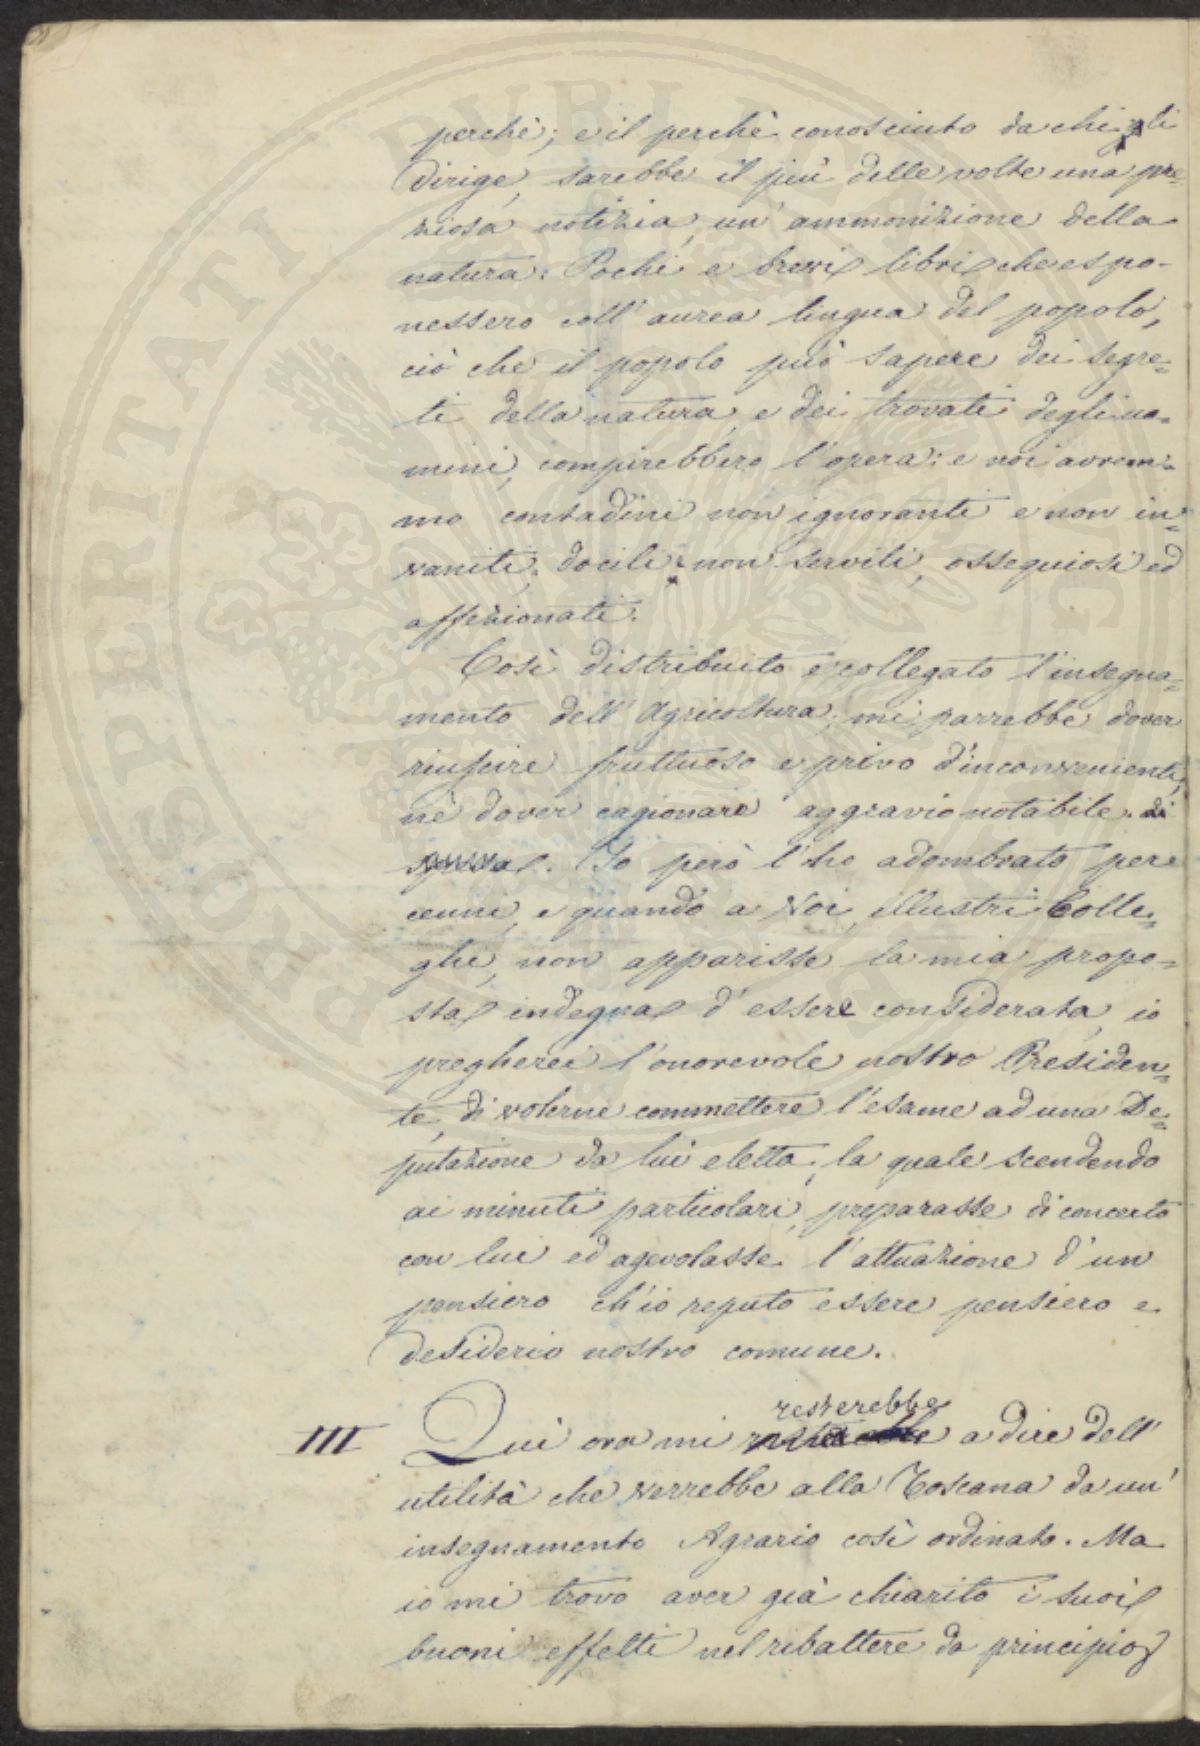 perchè; e il perchè conosciuto da chi gli
dirige, sarebbe il più delle volte una pre=
ziosa notizia, un' ammonizione della
natura. Pochi e brevi libri che espo-
nessero coll' aurea lingua del popolo,
ciò che il popolo può sapere dei segre=
ti della natura, e dei trovati degli uo=
mini, compirebbero l'opera: e noi avrem=
mo contadini non ignoranti e non in=
vaniti, docili non servili, ossequiosi ed
affezionati.
Così distribuito e collegato l'insegna=
mento dell' Agricoltura, mi parrebbe dover
riuscire fruttuoso e privo d'inconvenienti,
nè dover cagionare aggravio notabile. di
spesa. Io però l'ho adombrato per
cenni, e quando a Voi, illustri Colle=
ghi, non apparisse la mia propo=
sta indegna d'essere considerata, io
pregherei l'onorevole nostro Presiden=
te, di volerne commettere l'esame ad una De=
putazione da lui eletta, la quale scendendo
ai minuti particolari, preparasse di concerto
con lui ed agevolasse l'attuazione d'un
pensiero ch'io reputo essere pensiero e
desiderio nostro comune.
resterebbe
III Qui ora mi a dire dell'
utilità che verrebbe alla Toscana da un'
insegnamento Agrario così ordinato. Ma
io mi trovo aver già chiarito i suoi
buoni effetti nel ribattere da principio
PROSPERITATI PVBLICAE